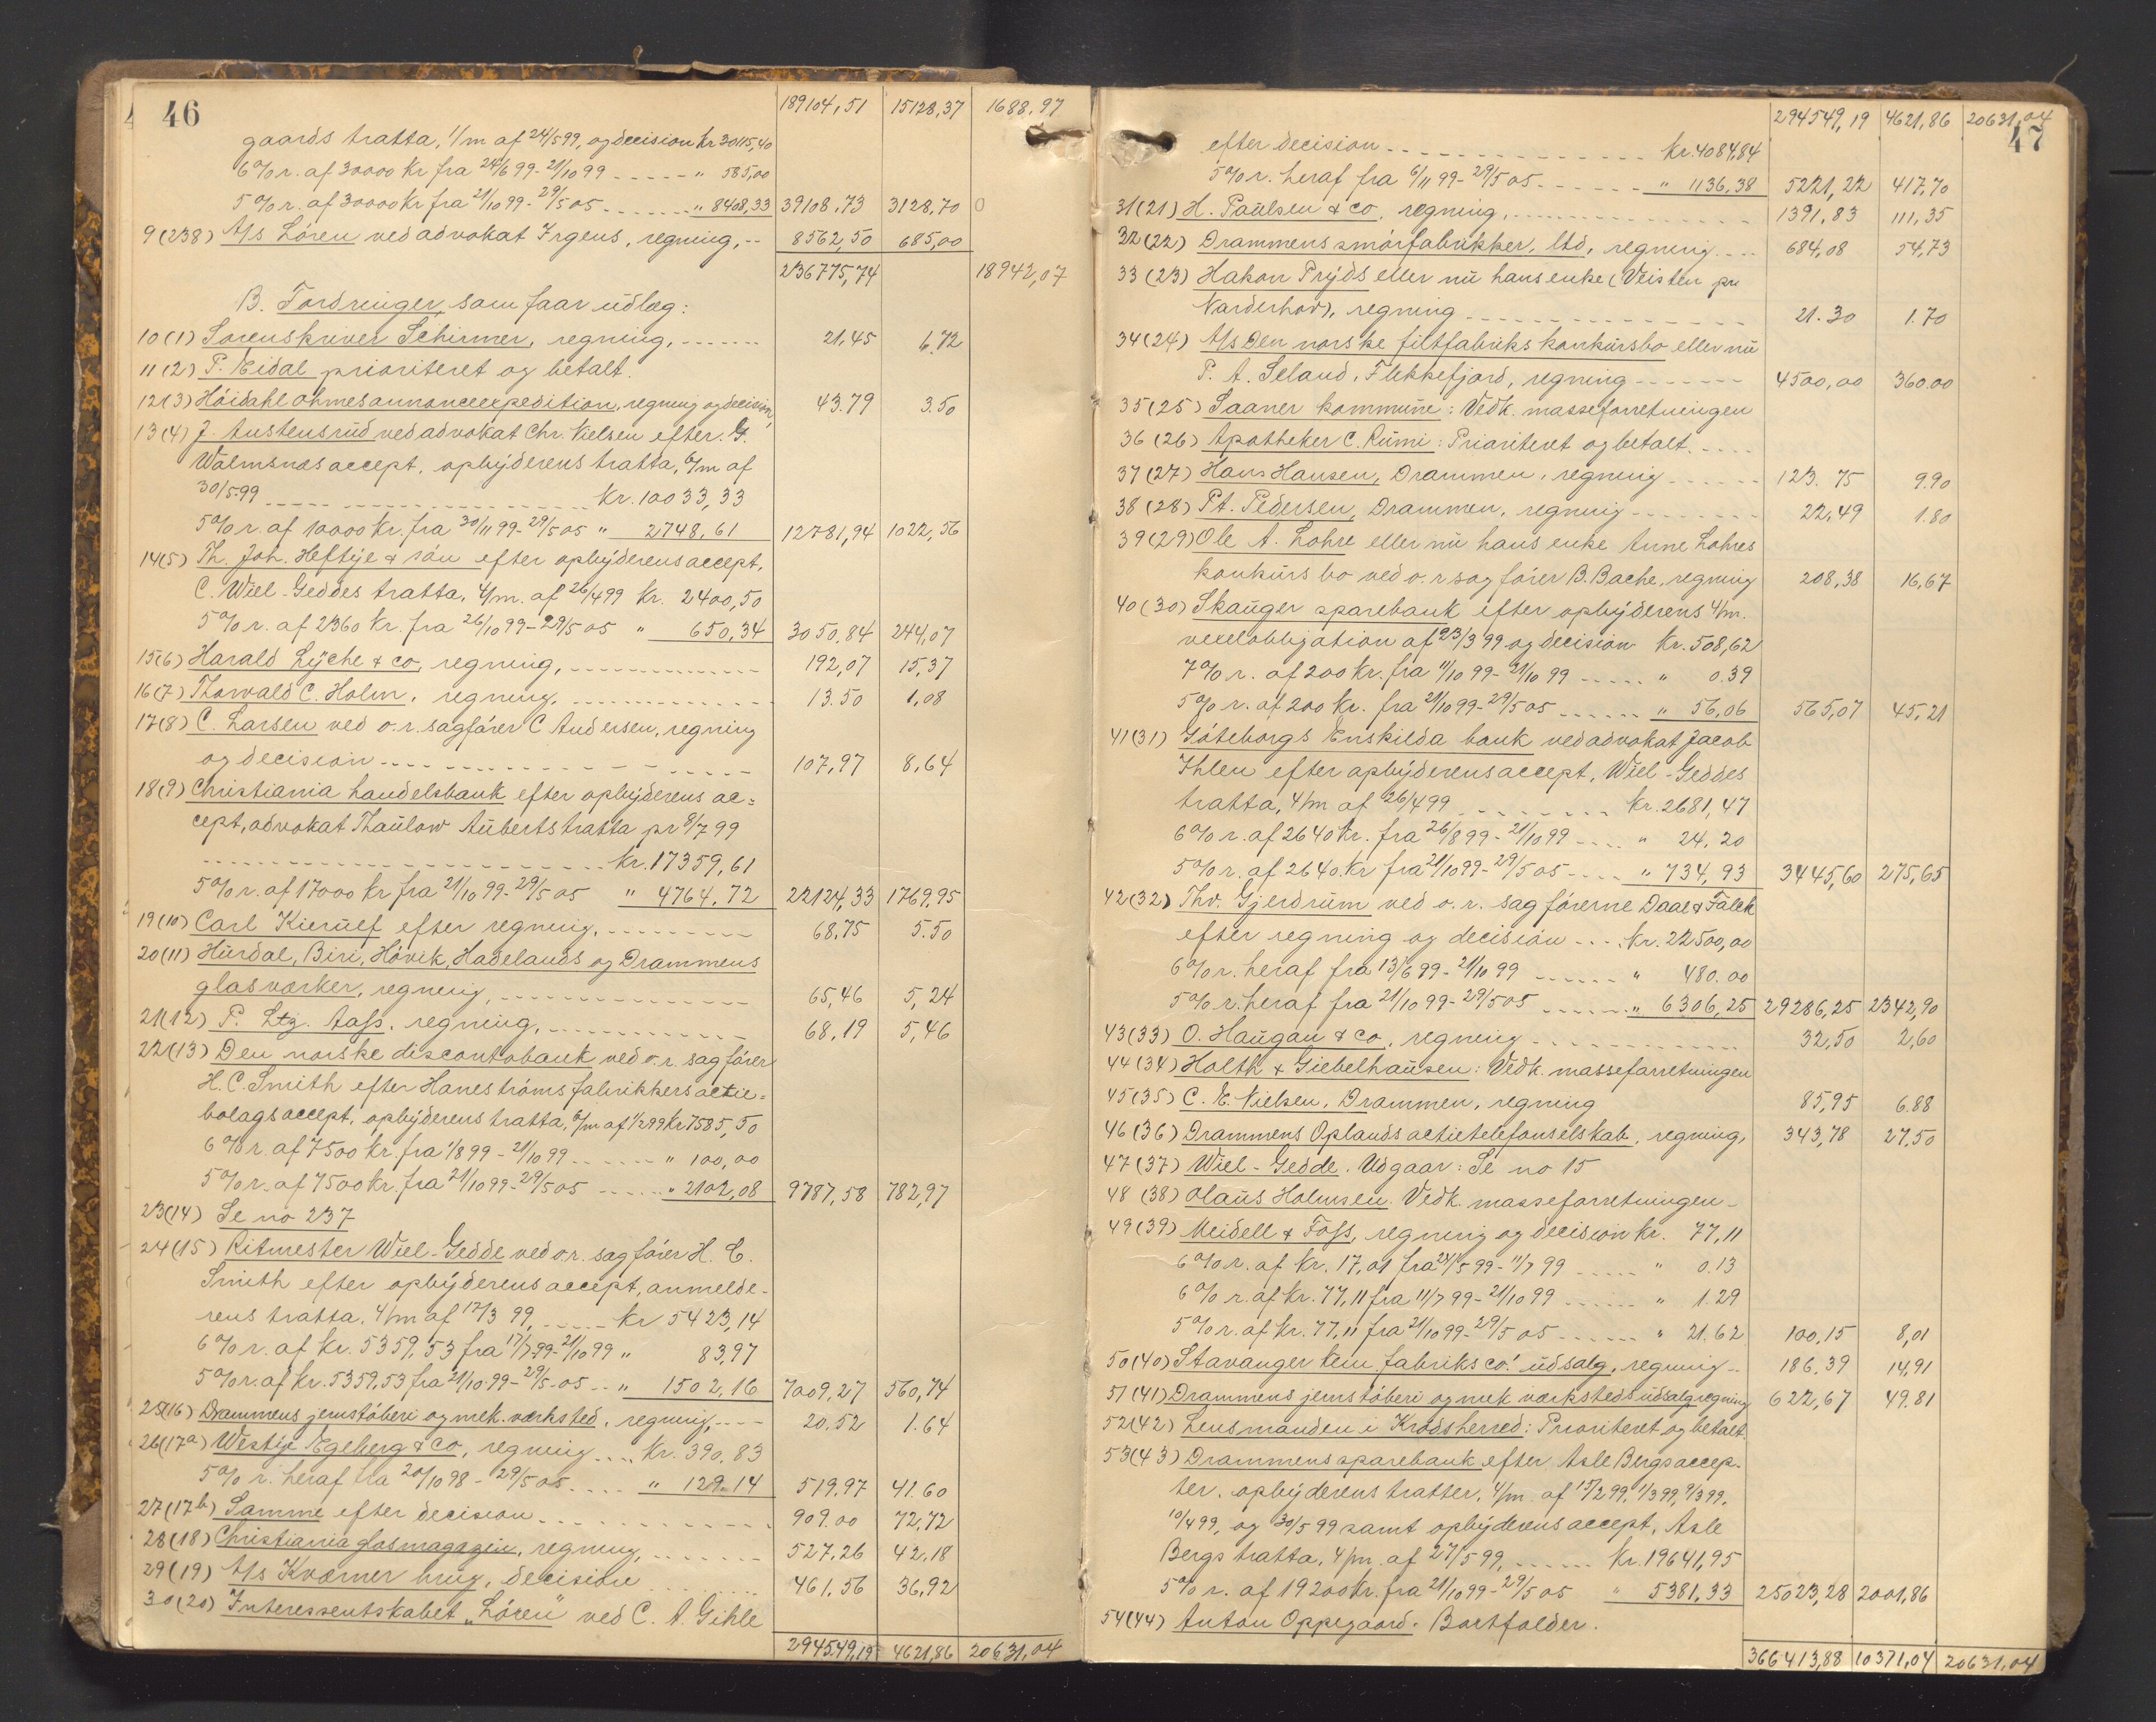 46
189104,51 15128,37 1688,97
gaards tratta, 1/m af 24/5 99, og decision kr 30115,40
6% r. af 30000 kr fra 24/6 99 - 21/10 99 " 585,00
5% r. af 30000 kr fra 21/10 99 - 29/5 05 " 8408,33 39108,73 3128,70 0
9(238) A/s Lören ved advokat Irgens, regning, 8562,50 685,00
236775,74 18942,07
B. Fordringer, som faar udlæg:
10(1) Sorenskriver Schirmer, regning, 21,45 6.72
11(2) P. Eidal prioriteret og betalt.
12(3) Höidahl Ohmes annonceexpedition, regning og decision, 43.79 3.50
13(4) J. Austensrud ved advokat Chr. Nielsen efter G.
Walmsnæs accept, opbyderens tratta, 6/m af
30/5 99 Kr. 10033,33
5% r. af 10000 Kr. fra 30/11 99 - 29/5 05 " 2748,61 12781,94 1022,56
14(5) Th. Joh. Heftye & sön efter opbyderens accept,
C. Wiel-Geddes tratta, 4/m. af 26/4 99 Kr. 2400,50
5% r. af 2360 Kr. fra 26/10 99 - 29/5 05 " 650,34 3050,84 244,07
15(6) Harald Lyche & co, regning, 192,07 15,37
16(7) Thorvald C. Holm, regning, 13.50 1,08
17(8) C. Larsen ved o.r. sagförer C Andersen, regning
og decision 107,97 8,64
18(9) Christiania handelsbank efter opbyderens ac=
cept, advokat Thaulow Auberts tratta pr 8/7 99
Kr. 17359,61
5% r. af 17000 Kr fra 21/10 99 - 29/5 05 " 4764,72 22124,33 1769,95
19(10) Carl Kierulf efter regning, 68,75 5.50
20(11) Hurdal, Biri, Hövik, Hadelands og Drammens
glasværker, regning, 65,46 5,24
21(12) P. Ltz. Aass, regning, 68,19 5,46
22(13) Den norske discontobank ved o.r. sagförer
H. C. Smith efter Haneströms fabrikkers actie=
bolags accept, opbyderens tratta, 6/m af 1/2 99 Kr 7585,50
6% r. af 7500 Kr. fra 1/8 99 - 21/10 99 " 100,00
5% r. af 7500 Kr. fra 21/10 99 - 29/5 05 " 2102,08 9787,58 782,97
23(14) Se no 237
24(15) Ritmester Wiel-Gedde ved o.r. sagförer H. C.
Smith efter opbyderens accept, anmelde-
rens tratta, 4/m af 17/3 99, Kr 5423,14
6% r. af kr. 5359,53 fra 17/7 99 - 21/10 99 " 83,97
5% r. af kr. 5359,53 fra 21/10 99 - 29/5 05 " 1502,16 7009,27 560,74
25(16) Drammens jernstöberi og mek. værksted, regning, 20.52 1.64
26(17a) Westye Egeberg & co, regning Kr. 390,83
5% r. heraf fra 20/10 98 - 29/5 05 " 129.14 519,97 41.60
27(17b) Samme efter decision 909.00 72,72
28(18) Christiania glasmagazin, regning, 527,26 42,18
29(19) A/s Kværner brug, decision 461,56 36,92
30(20) Interessentskabet „Lören" ved C. A. Gihle
294549,19 4621,86 20631,04
47
294549,19 4621,86 20631,04
efter decision Kr. 4084,84
5% r. heraf fra 6/11 99 - 29/5 05 " 1136,38 5221,22 417,70
31(21) H. Paulsen & co, regning, 1391,83 111,35
32(22) Drammens smörfabrikker, ltd, regning 684,08 54,73
33(23) Hakon Pryds eller nu hans enke (Veisten pr
Narderhov), regning 21.30 1.70
34(24) A/s Den norske filtfabriks konkursbo eller nu
P. A. Seland, Flekkefjord, regning 4500,00 360.00
35(25) Saaner kommune: Vedk. masseforretningen
36(26) Apotheker C. Rumi: Prioriteret og betalt.
37(27) Hans Hansen, Drammen, regning 123.75 9.90
38(28) P.A. Pedersen, Drammen, regning 22,49 1.80
39(29) Ole A. Lohre eller nu hans enke Anne Lohres
konkursbo ved o.r sagförer B. Bache, regning 208,38 16,67
40(30) Skauger sparebank efter opbyderens 4/m.
vexelobligation af 23/3 99 og decision Kr. 508,62
7% r. af 200 Kr. fra 11/10 99 - 21/10 99 " 0.39
5% r. af 200 Kr. fra 21/10 99 - 29/5 05 " 56,06 565,07 45,21
41(31) Göteborgs Enskilda bank ved advokat Jacob
Ihlen efter opbyderens accept, Wiel-Geddes
tratta, 4/m af 26/4 99 Kr. 2681,47
6% r. af 2640 Kr. fra 26/8 99 - 21/10 99 " 24,20
5% r. af 2640 Kr fra 21/10 99 - 29/5 05 " 734,93 3445,60 275,65
42(32) Thv. Gjerdrum ved o.r. sagförerne Daae & Falck
efter regning og decision Kr. 22500,00
6% r. heraf fra 13/6 99 - 21/10 99 " 480.00
5% r. heraf fra 21/10 99 - 29/5 05 " 6306,25 29286,25 2342,90
43(33) O. Haugan & co, regning 32,50 2,60
44(34) Holth & Giebelhausen: Vedk. masseforretningen
45(35) C. E. Nielsen, Drammen, regning 85,95 6.88
46(36) Drammens Oplands actietelefonselskab, regning, 343,78 27,50
47(37) Wiel-Gedde. Udgaar: Se no 15
48(38) Olaus Holmsen. Vedk. masseforretningen
49(39) Meidell & Foss, regning og decision kr. 77,11
6% r. af kr. 17,01 fra 24/5 99 - 11/7 99 " 0.13
6% r. af kr. 77,11 fra 11/7 99 - 21/10 99 " 1.29
5% r. af kr. 77,11 fra 21/10 99 - 29/5 05 " 21.62 100,15 8,01
50(40) Stavanger kem. fabriks co.' udsalg, regning 186,39 14,91
51(41) Drammens jernstöberi og mek værksteds udsalg regning 622,67 49.81
52(42) Lensmanden i Krødsherred: Prioriteret og betalt.
53(43) Drammens sparebank efter Asle Bergs accep-
ter, opbyderens tratter, 4/m. af 15/2 99, 1/3 99, 9/3 99,
10/4 99, og 30/5 99 samt opbyderens accept, Asle
Bergs tratta, 4/m. af 27/5 99, Kr. 19641,95
5% r. af 19200 Kr. fra 21/10 99 - 29/5 05 " 5381,33 25023,28 2001,86
54(44) Anton Oppegaard. Bortfalder.
366413,88 10371,04 20631,04